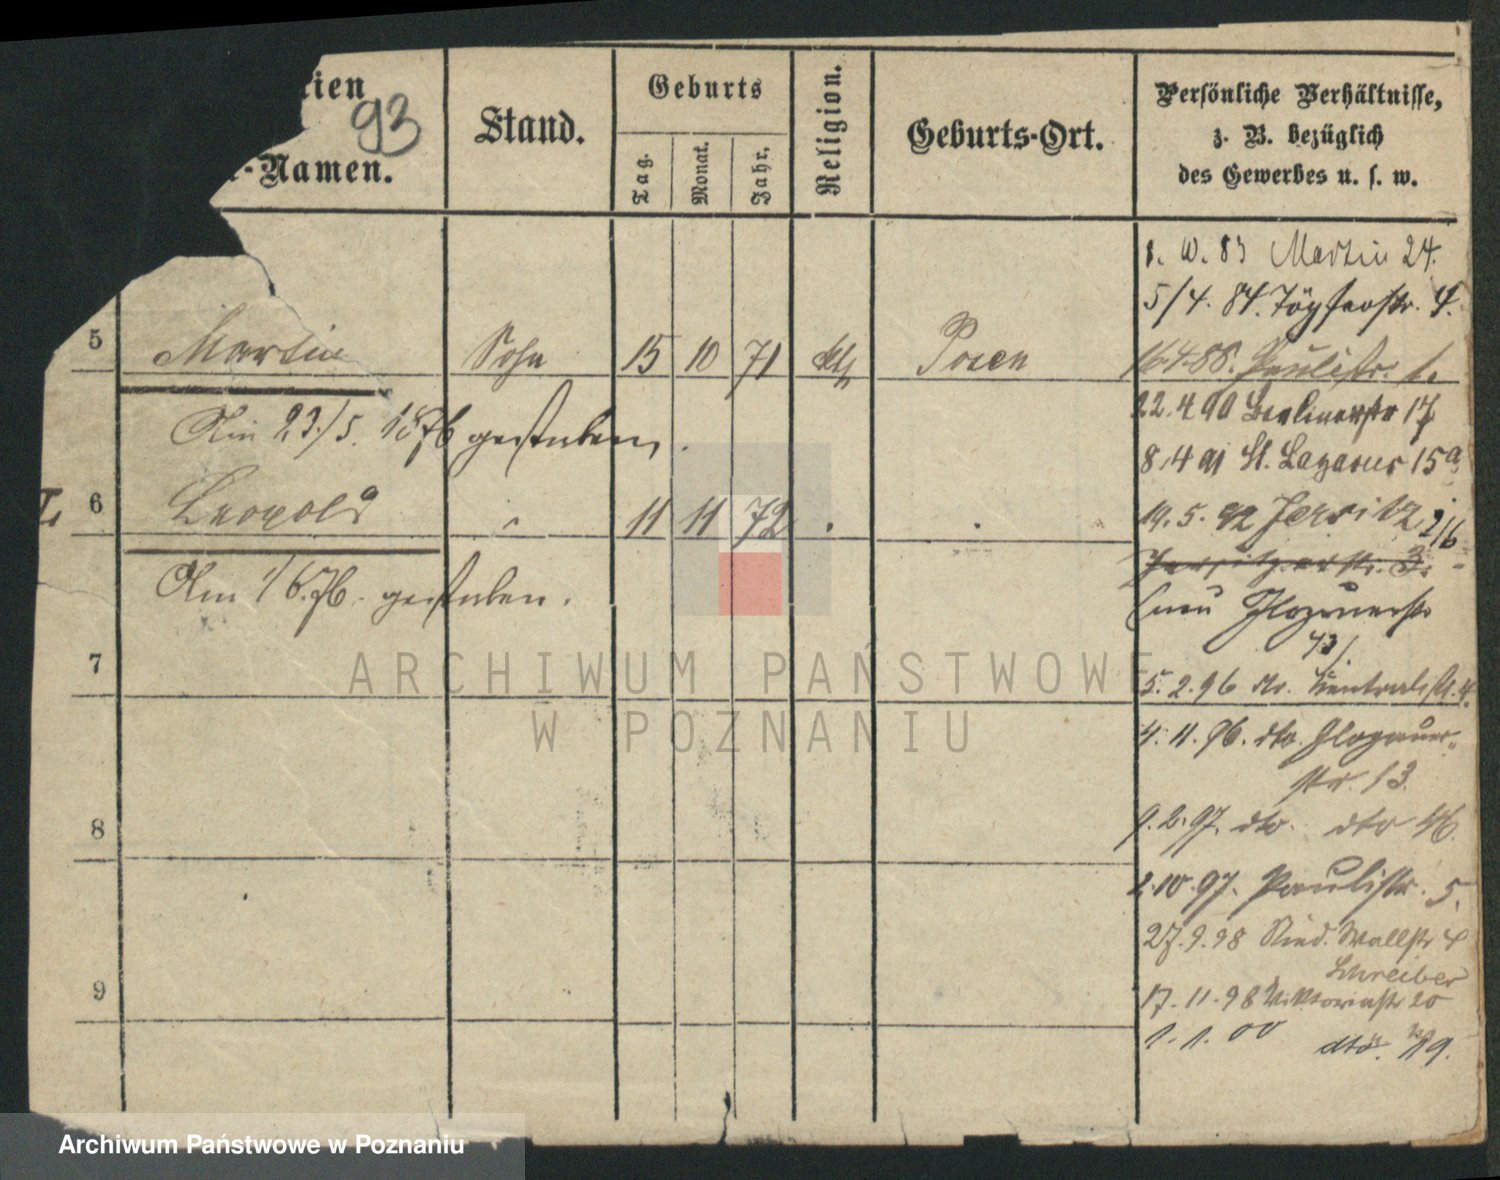 rien
93
-Namen.
Stand.
Geburts
Tag.
Monat.
Jahr.
Religion.
Geburts-Ort.
Persönliche Verhältnisse,
z. B. bezüglich
des Gewerbes u. s. w.
1. W. 83 Martin 24.
5/4. 84. Töpferstr. 4.
5 Martin Sohn 15 10 71 kth Posen
16.4.88. Paulistr. 1.
Am 23./5. 1876 gestorben.
22.4.90 Berlinerstr 17
8.4 91 St. Lazarus 15a
6 Leopold " 11 11 72 " "
19.5.92 Jersitz 2/6
Jersitzerstr. 3.
Am 1/6.76. gestorben.
Glogauerstr
73/.
7
5.2.96 Centralstr. 4.
4.11.96. dto. Glogauer-
str. 13.
8
9.2.97. dto. dto 46.
2.10.97. Paulistr. 5.
27.9.98 Wallstr 4
Schreiber
9
17.11.98 Viktoriastr 20
1.1.00 dto. 19.
ARCHIWUM PAŃSTWOWE
W POZNANIU
Archiwum Państwowe w Poznaniu